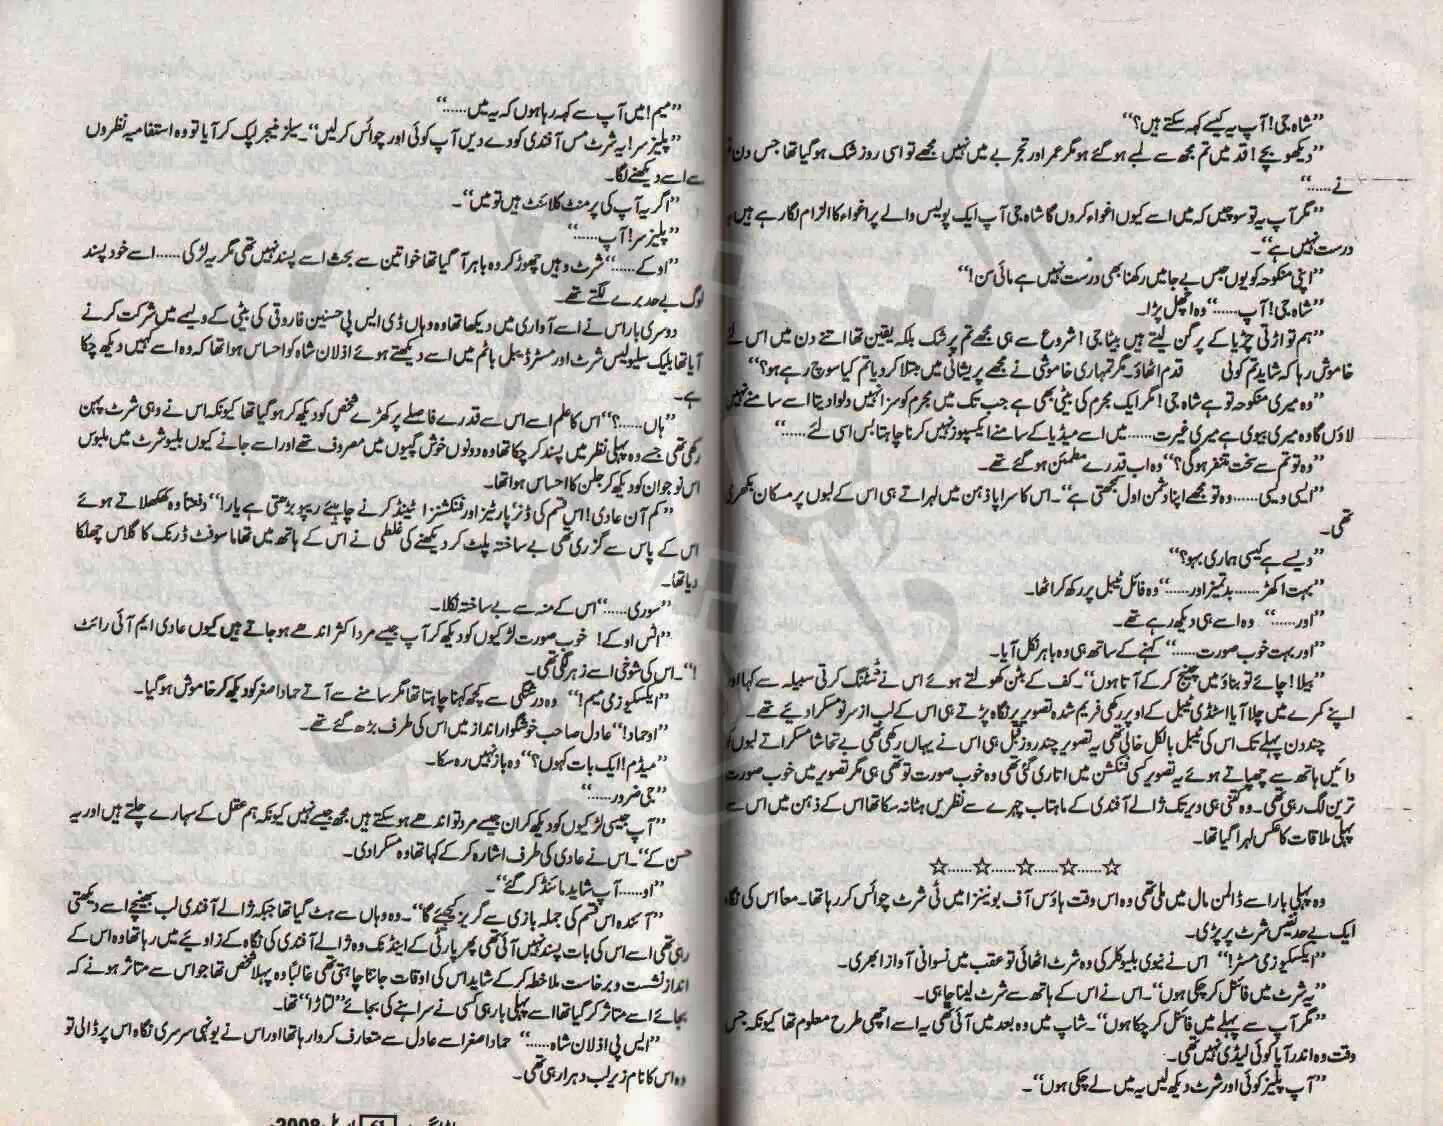 ”شاہ جی! آپ یہ کیسے کہہ سکتے ہیں؟“
”دیکھو بچے! قد میں تم مجھ سے لمبے ہو گئے ہو مگر عمر اور تجربے میں نہیں مجھے تو اسی روز شک ہو گیا تھا جس دن
نے......“
”مگر آپ یہ تو سوچیں کہ میں اسے کیوں اغواء کروں گا شاہ جی آپ ایک پولیس والے پر اغواء کا الزام لگا رہے ہیں یہ
درست نہیں ہے“۔
”اپنی منکوحہ کو یوں حبس بے جا میں رکھنا بھی درست نہیں ہے مائی سن!“
”شاہ جی! آپ......“ وہ اچھل پڑا۔
”ہم تو اڑتی چڑیا کے پر گن لیتے ہیں بیٹا جی! شروع سے ہی مجھے تم پر شک بلکہ یقین تھا اتنے دن میں اس لئے
خاموش رہا کہ شاید تم کوئی قدم اٹھاؤ۔ مگر تمہاری خاموشی نے مجھے پریشانی میں مبتلا کر دیا تم کیا سوچ رہے ہو؟“
”وہ میری منکوحہ تو ہے شاہ جی! مگر ایک مجرم کی بیٹی بھی ہے جب تک میں مجرم کو سزا نہیں دلوا دیتا اسے سامنے نہیں
لاؤں گا وہ میری بیوی ہے میری غیرت...... میں اسے میڈیا کے سامنے ایکسپوز نہیں کرنا چاہتا بس اسی لئے......“
”وہ تو تم سے سخت متنفر ہو گی؟“ وہ اب قدرے مطمئن ہو گئے تھے۔
”ایسی ویسی...... وہ تو مجھے اپنا دشمن اول سمجھتی ہے“۔ اس کا سراپا ذہن میں لہراتے ہی اس کے لبوں پر مسکان بکھری
تھی۔
”ویسے ہے کیسی ہماری بہو؟“
”بہت اکھڑ...... بدتمیز اور......“ وہ فائل ٹیبل پر رکھ کر اٹھا۔
”اور......“ وہ اسے ہی دیکھ رہے تھے۔
”اور بہت خوب صورت......“ کہنے کے ساتھ ہی وہ باہر نکل آیا۔
”بیلا! چائے تو بناؤ میں چینج کر کے آتا ہوں“۔ کف کے بٹن کھولتے ہوئے اس نے ڈسٹنگ کرتی سبیلہ سے کہا اور
اپنے کمرے میں چلا آیا اسٹڈی ٹیبل کے اوپر رکھی فریم شدہ تصویر پر نگاہ پڑتے ہی اس کے لب از سر تو مسکرا دیئے تھے۔
چند دن پہلے تک اس کی ٹیبل بالکل خالی تھی یہ تصویر چند روز قبل ہی اس نے یہاں رکھی تھی بے تحاشا مسکراتے لبوں کو
دائیں ہاتھ سے چھپاتے ہوئے یہ تصویر کسی فنکشن میں اتاری گئی تھی وہ خوب صورت تو تھی ہی مگر تصویر میں خوب صورت
ترین لگ رہی تھی۔ وہ کتنی ہی دیر تک ژالے آفندی کے ماہتاب چہرے سے نظریں ہٹا نہ سکا تھا اس کے ذہن میں اس سے
پہلی ملاقات کا عکس لہرا گیا تھا۔
☆......☆......☆......☆......☆
وہ پہلی بار اسے ڈالمن مال میں ملی تھی وہ اس وقت ہاؤس آف بوٹینز میں ٹی شرٹ چوائس کر رہا تھا۔ معاً اس کی نگاہ
ایک بے حد نفیس شرٹ پر پڑی۔
”ایکسکیوز می مسٹر!“ اس نے نیوی بلیو کلر کی وہ شرٹ اٹھائی تو عقب میں نسوانی آواز ابھری۔
”یہ شرٹ میں فائنل کر چکی ہوں“۔ اس نے اس کے ہاتھ سے شرٹ لینا چاہی۔
”مگر آپ سے پہلے میں فائنل کر چکا ہوں“۔ شاپ میں وہ بعد میں آئی تھی یہ اسے اچھی طرح معلوم تھا کیونکہ جس
وقت وہ اندر آیا کوئی لیڈی نہیں تھی۔
”آپ پلیز کوئی اور شرٹ دیکھ لیں یہ میں لے چکی ہوں“۔
”میم! میں آپ سے کہہ رہا ہوں کہ یہ میں......“
”پلیز سر! یہ شرٹ مس آفندی کو دے دیں آپ کوئی اور چوائس کر لیں“۔ سیلز منیجر لپک کر آیا تو وہ استفہامیہ نظروں
سے اسے دیکھنے لگا۔
”اگر یہ آپ کی پرمنٹ کلائنٹ ہیں تو میں“۔
”پلیز سر! آپ......“
”اوکے......“ شرٹ وہیں چھوڑ کر وہ باہر آ گیا تھا خواتین سے بحث اسے پسند نہیں تھی مگر یہ لڑکی...... اسے خود پسند
لوگ بے حد برے لگتے تھے۔
دوسری بار اس نے اسے آواری میں دیکھا تھا وہ وہاں ڈی ایس پی حسنین فاروقی کی بیٹی کے ولیمے میں شرکت کرنے
آیا تھا بلیک سلیولیس شرٹ اور مسٹرڈ بیل باٹم میں اسے دیکھتے ہوئے اذلان شاہ کو احساس ہوا تھا کہ وہ اسے کہیں دیکھ چکا
ہے۔
”ہاں......؟“ اس کا علم اسے اس سے قدرے فاصلے پر کھڑے شخص کو دیکھ کر ہو گیا تھا کیونکہ اس نے وہی شرٹ پہن
رکھی تھی جسے وہ پہلی نظر میں پسند کر چکا تھا وہ دونوں خوش گپیوں میں مصروف تھے اور اسے جانے کیوں بلیو شرٹ میں ملبوس
اس نوجوان کو دیکھ کر جلن کا احساس ہوا تھا۔
”کم آن عادی! اس قسم کی ڈنر پارٹیز اور فنکشنز اٹینڈ کرنے چاہیئے ریپو بڑھتی ہے یار!“ دفعتاً وہ کھلکھلاتے ہوئے
اس کے پاس سے گزری تھی بے ساختہ پلٹ کر دیکھنے کی غلطی نے اس کے ہاتھ میں تھاما سوفٹ ڈرنک کا گلاس چھلکا
دیا تھا۔
”سوری......“ اس کے منہ سے بے ساختہ نکلا۔
”اٹس اوکے! خوب صورت لڑکیوں کو دیکھ کر آپ جیسے مرد اکثر اندھے ہو جاتے ہیں کیوں عادی ایم آئی رائٹ
!“۔ اس کی شوخی اسے زہر لگی تھی۔
”ایکسکیوز می میم!“ وہ درشتگی سے کچھ کہنا چاہتا تھا مگر سامنے سے آتے حماد اصغر کو دیکھ کر خاموش ہو گیا۔
”او حماد!“ عادل صاحب خوشگوار انداز میں اس کی طرف بڑھ گئے تھے۔
”میڈم! ایک بات کہوں؟“ وہ باز نہیں رہ سکا۔
”جی ضرور......“
”آپ جیسی لڑکیوں کو دیکھ کر ان جیسے مرد تو اندھے ہو سکتے ہیں مجھ جیسے نہیں کیونکہ ہم عقل کے سہارے چلتے ہیں اور یہ
حسن کے“۔ اس نے عادی کی طرف اشارہ کر کے کہا تھا وہ مسکرا دی۔
”او...... آپ شاید مائنڈ کر گئے“۔
”آئندہ اس قسم کی جملہ بازی سے گریز کیجئے گا“۔ وہ وہاں سے ہٹ گیا تھا جبکہ ژالے آفندی لب بھینچے اسے دیکھتی
رہی تھی اسے اس کی بات پسند نہیں آئی تھی پھر پارٹی کے اینڈ تک وہ ژالے آفندی کی نگاہ کے زاویئے میں رہا تھا وہ اس کے
انداز نشست و برخاست ملاحظہ کر کے شاید اس کی اوقات جاننا چاہتی تھی غالباً وہ پہلا شخص تھا جو اس سے متاثر ہونے کہ
بجائے اسے متاثر کر گیا تھا اسے پہلی بار ہی کسی نے سراہنے کی بجائے ”لتاڑا“ تھا۔
”ایس پی اذلان شاہ......“ حماد اصغر اسے عادل سے متعارف کروا رہا تھا اور اس نے یونہی سرسری نگاہ اس پر ڈالی تو
وہ اس کا نام زیر لب دہرا رہی تھی۔